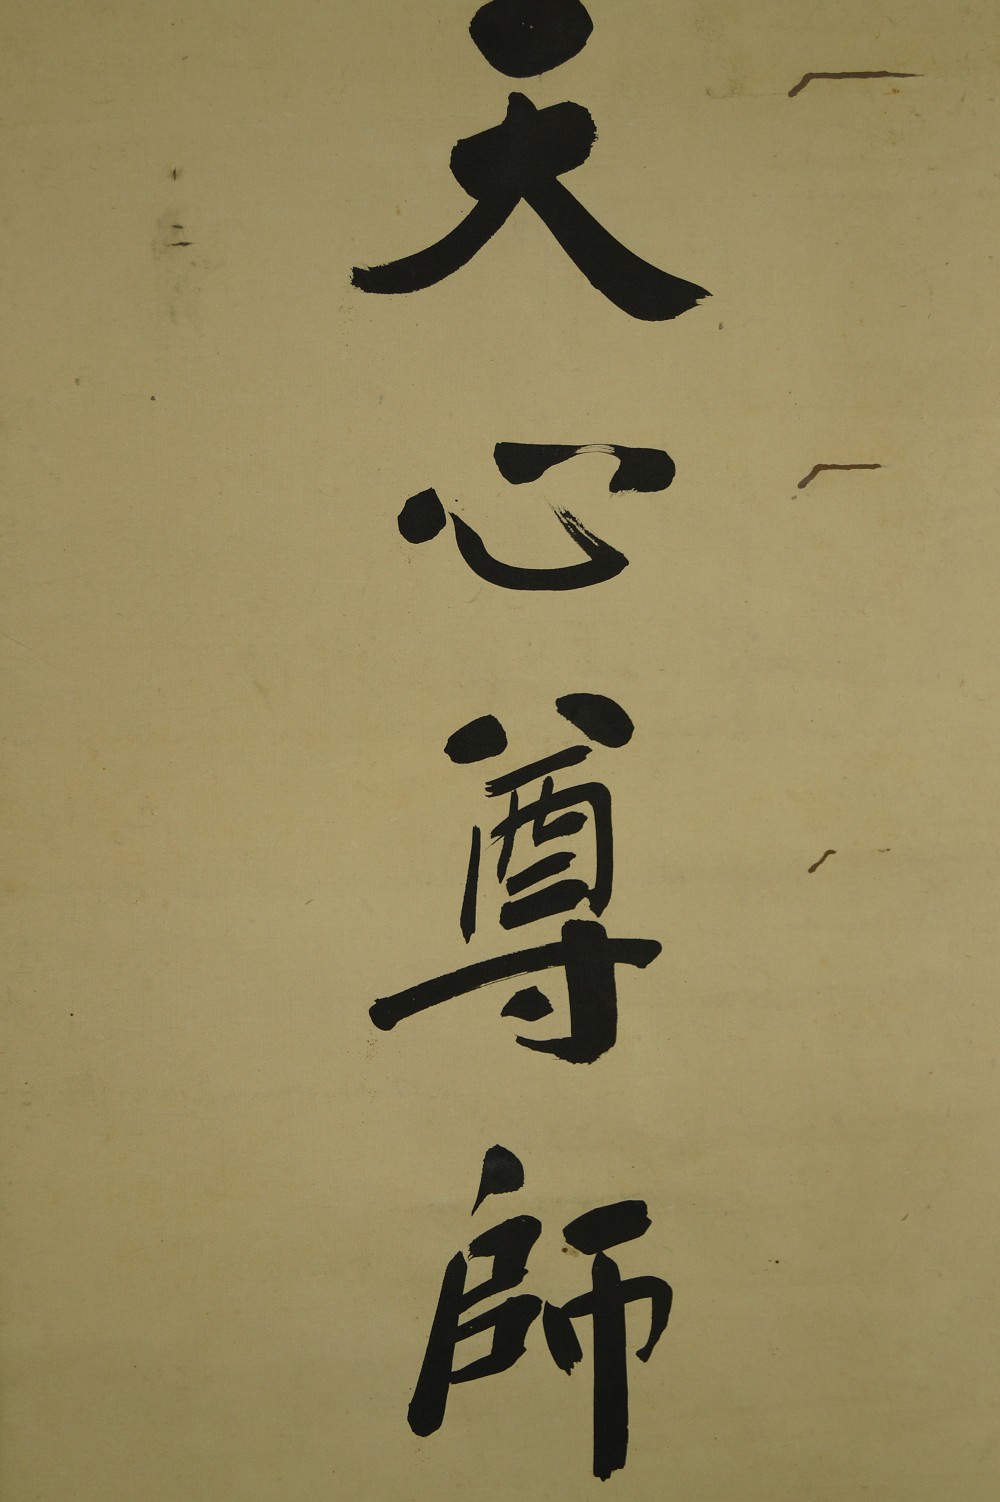 天心尊師